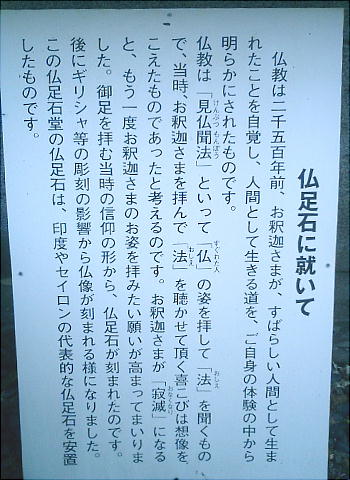 仏足石に就いて
仏教は二千五百年前、お釈迦さまが、すばらしい人間として生ま
れたことを自覚し、人間として生きる道を、ご自身の体験の中から
明らかにされたものです。
仏教は「見仏聞法」といって「仏」の姿を拝して「法」を聞くもの
で、当時、お釈迦さまを拝んで「法」を聴かせて頂く喜こびは想像を
こえたものであったと考えるのです。お釈迦さまが「寂滅」になる
と、もう一度お釈迦さまのお姿を拝みたい願いが高まってまいりま
した。御足を拝む当時の信仰の形から、仏足石が刻まれたのです。
後にギリシャ等の彫刻の影響から仏像が刻まれる様になりました。
この仏足石堂の仏足石は、印度やセイロンの代表的な仏足石を安置
したものです。